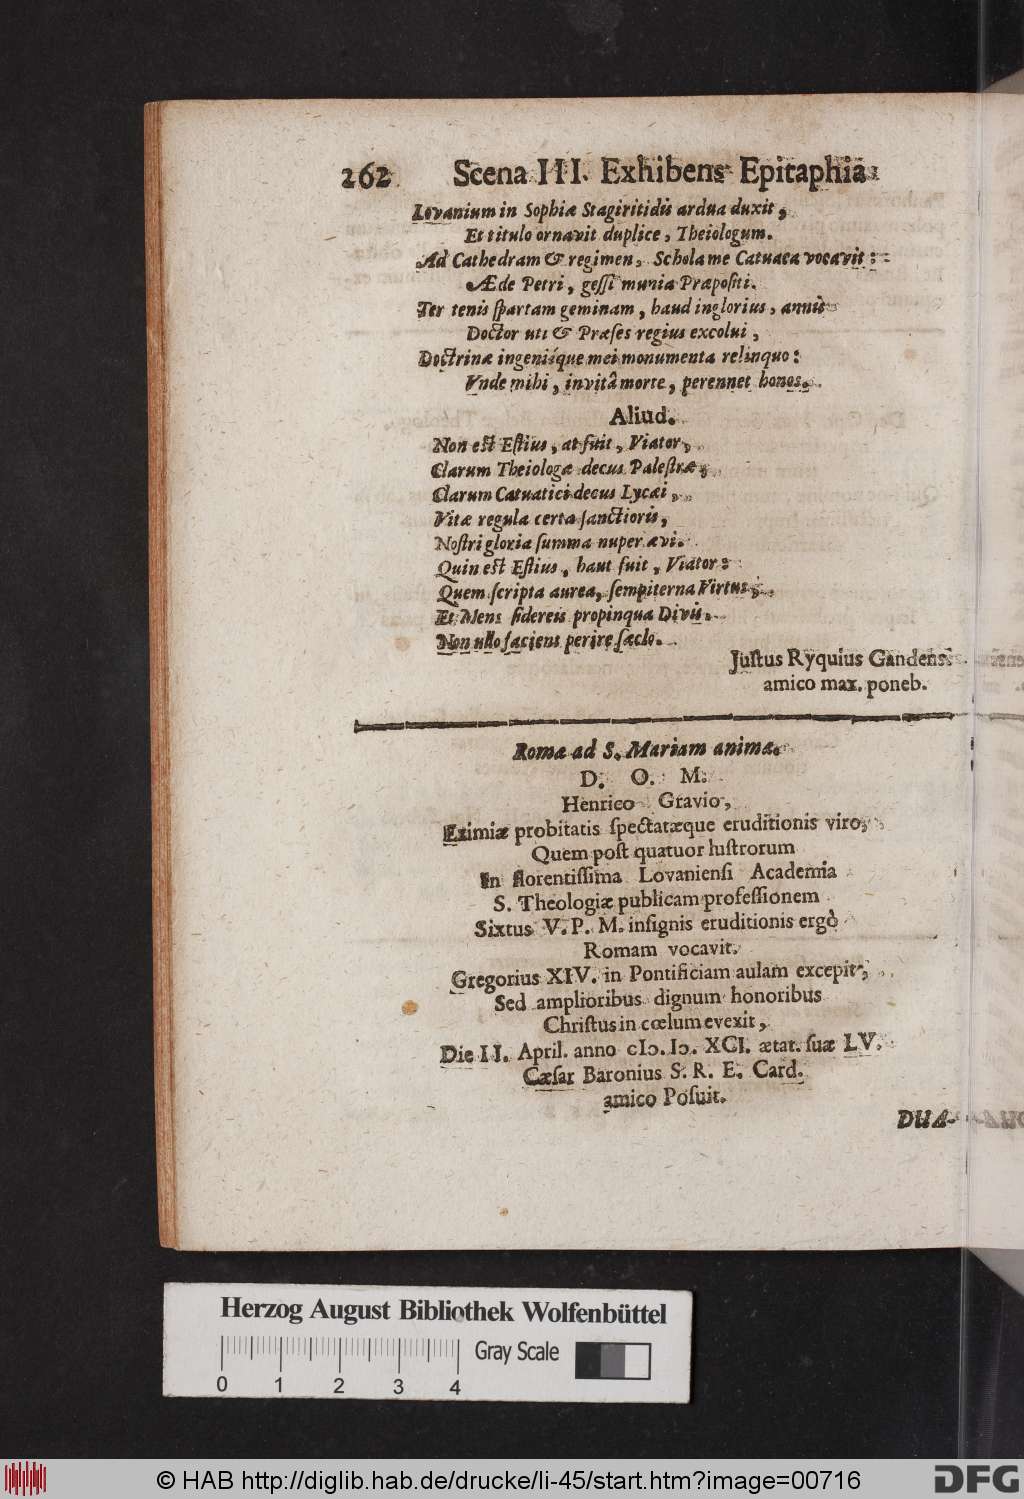 262 Scena III. Exhibens Epitaphia
Lovanium in Sophiæ Stagiritidis ardua duxit,
Et titulo ornavit duplice, Theiologum.
Ad Cathedram & regimen, Schola me Catuaca vocavit:
Æde Petri, gessi munia Præpositi.
Ter tenis spartam geminam, haud inglorius, annis
Doctor uti & Præses regius excolui,
Doctrinæ ingeniíque mei monumenta relinquo:
Vnde mihi, invitâ morte, perennet honos.
Aliud.
Non est Estius, at fuit, Viator,
Clarum Theiologæ decus Palestræ,
Clarum Catuatici decus Lycæi,
Vitæ regula certa sanctioris,
Nostri gloria summa nuper ævi.
Quin est Estius, haut fuit, Viator:
Quem scripta aurea, sempiterna Virtus,
Et Mens sidereis propinqua Divis.
Non ullo faciens perire sæclo.
Justus Ryquius Gandensis
amico max. poneb.
Romæ ad S. Mariam animæ.
D. O. M.
Henrico Gravio,
Eximiæ probitatis spectatæque eruditionis viro,
Quem post quatuor lustrorum
In florentissima Lovaniensi Academia
S. Theologiæ publicam professionem
Sixtus V. P. M. insignis eruditionis ergò
Romam vocavit.
Gregorius XIV. in Pontificiam aulam excepit,
Sed amplioribus dignum honoribus
Christus in cœlum evexit,
Die II. April. anno cIɔ. Iɔ. XCI. ætat. suæ LV.
Cæsar Baronius S. R. E. Card.
amico Posuit.
DUA-
Herzog August Bibliothek Wolfenbüttel
Gray Scale
0 1 2 3 4
© HAB http://diglib.hab.de/drucke/li-45/start.htm?image=00716
DFG